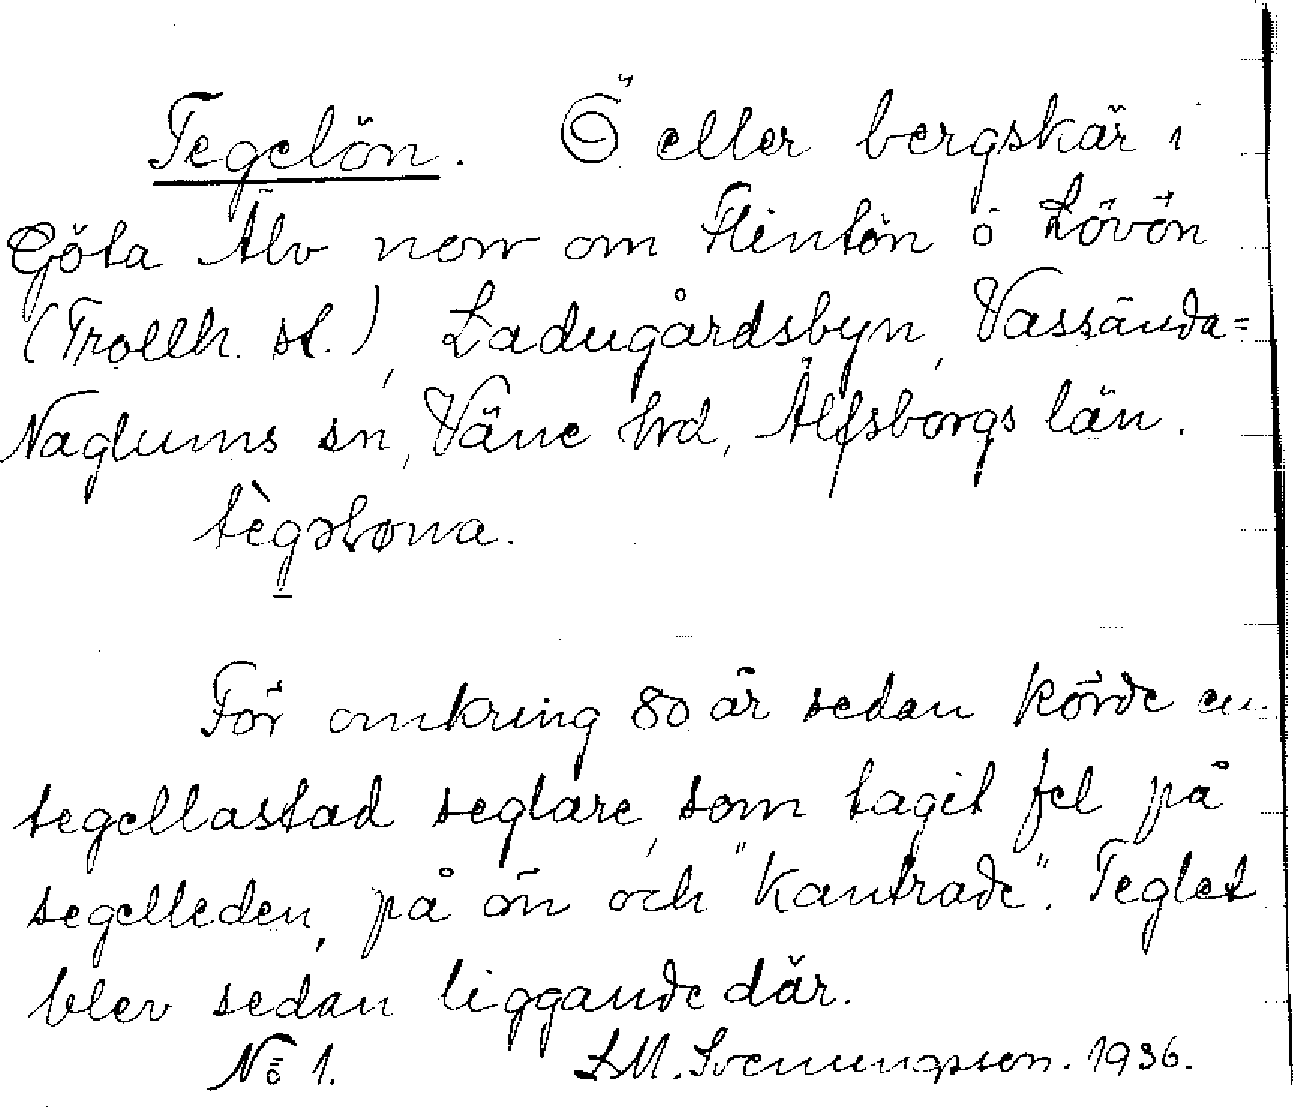 Tegelön. Ö eller bergskär i
Göta Älv norr om Flintön o Lövön
(Trollh. st.), Ladugårdsbyn, Vassända=
Naglums sn, Väne hrd, Älfsborgs län.
tègəløna.
För omkring 80 år sedan körde en
tegellastad seglare, som tagit fel på
segelleden, på ön och "kantrade". Teglet
blev sedan liggande där.
No 1. LM. Svenungsson. 1936.